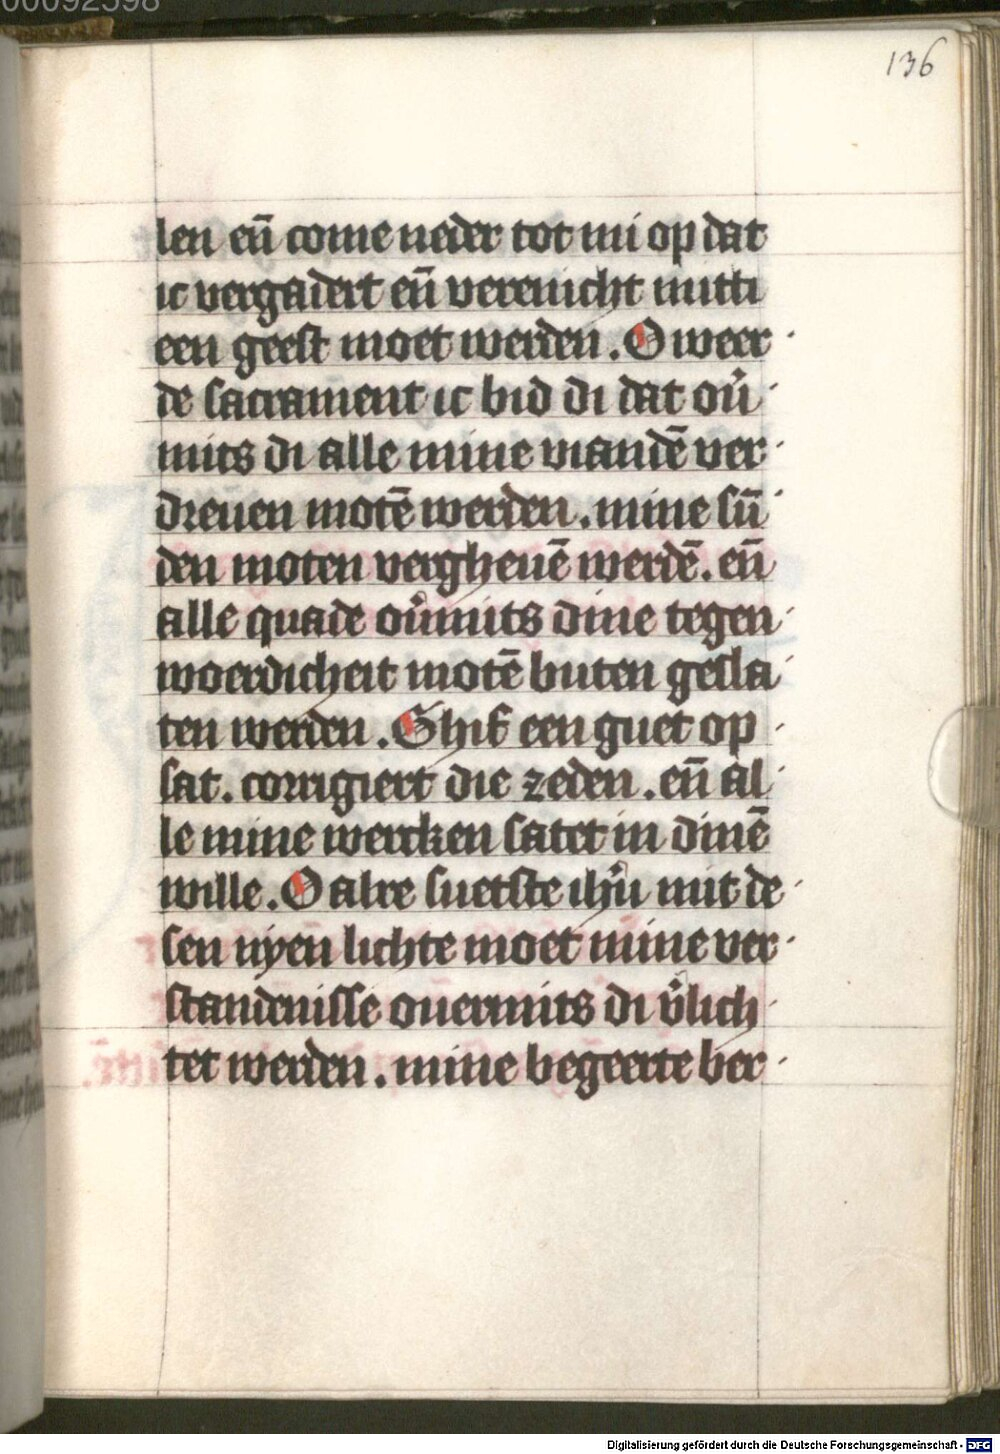 00092598
136
len eñ come neder tot mi op dat
ic vergadert eñ verenicht mitti
een geest moet werden. O weer
de sacrament ic bid di dat ou᷑
mits di alle mine viandē ver
dreuen motē werden. mine sū
den moten vergheuē werdē. eñ
alle quade ou᷑mits dine tegen
woerdicheit motē buten gesla
ten werden. Ghif een guet op
sat. corrigiert die zeden. eñ al
le mine wercken satet in dinē
wille. O alre suetste ihu᷑ mit de
sen nyen lichte moet mine ver
standenisse ouermits di v᷑lich
tet werden. mine begeerte ber
Digitalisierung gefördert durch die Deutsche Forschungsgemeinschaft - DFG